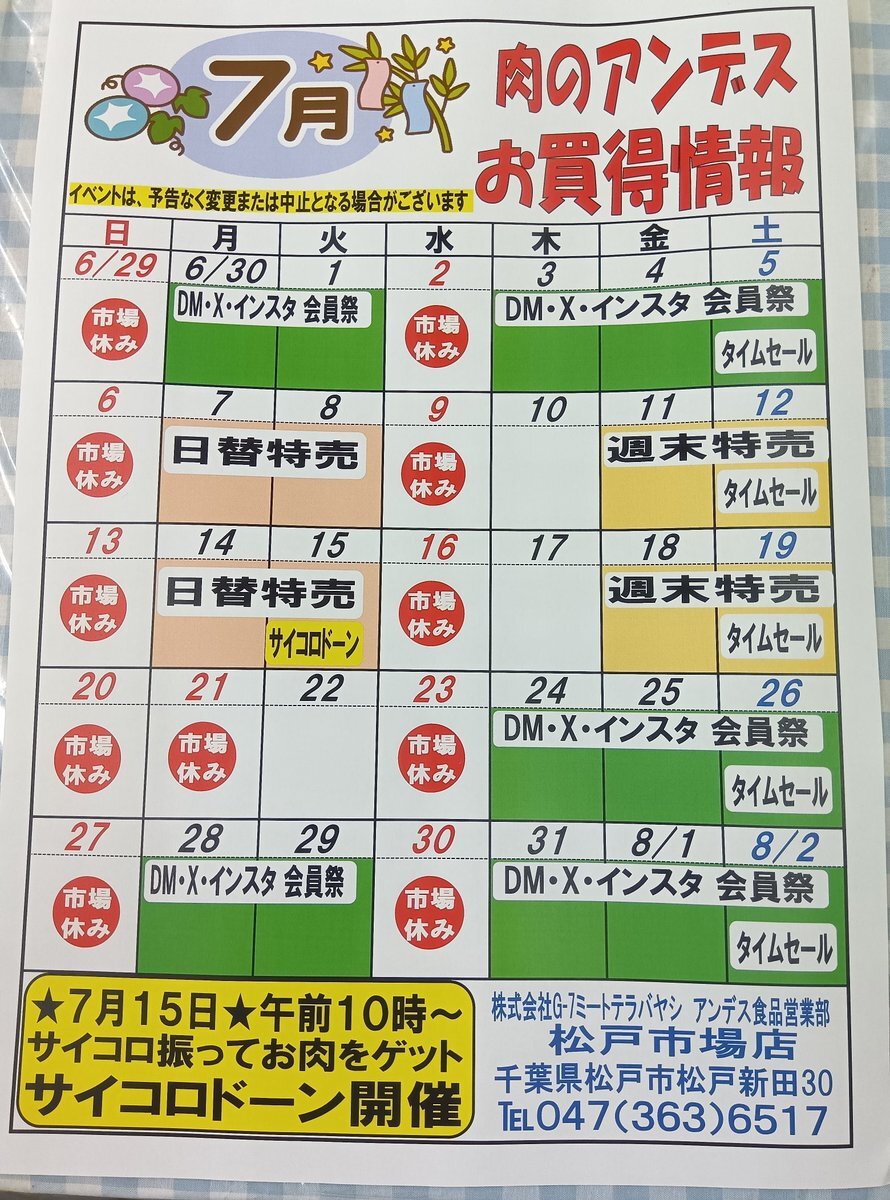 7月
肉のアンデス
お買得情報
イベントは、予告なく変更または中止となる場合がございます
日 月 火 水 木 金 土
6/29 6/30 1 2 3 4 5
市場休み DM・X・インスタ 会員祭 市場休み DM・X・インスタ 会員祭
タイムセール
6 7 8 9 10 11 12
市場休み 日替特売 市場休み 週末特売
タイムセール
13 14 15 16 17 18 19
市場休み 日替特売 市場休み 週末特売
サイコロドーン タイムセール
20 21 22 23 24 25 26
市場休み 市場休み 市場休み DM・X・インスタ 会員祭
タイムセール
27 28 29 30 31 8/1 8/2
市場休み DM・X・インスタ 会員祭 市場休み DM・X・インスタ 会員祭
タイムセール
★7月15日★午前10時～
サイコロ振ってお肉をゲット
サイコロドーン開催
株式会社G-7ミートテラバヤシ アンデス食品営業部
松戸市場店
千葉県松戸市松戸新田30
TEL047(363)6517